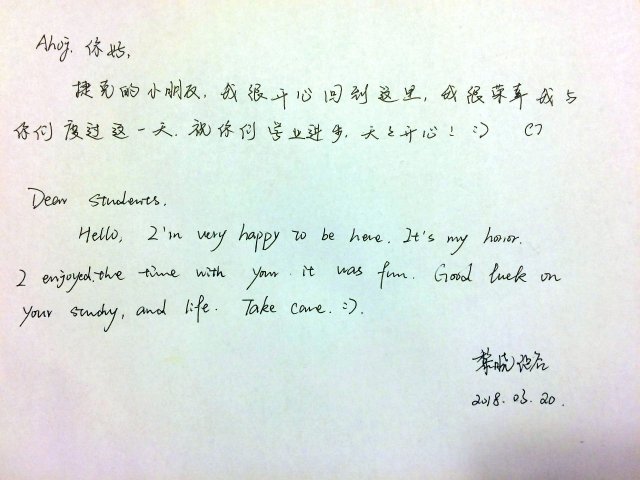 Ahoj. 你好,
捷克的小朋友. 我很开心回到这里, 我很荣幸我与
你们度过这一天. 祝你们学业进步, 天天开心! :)
Dear students.
Hello, I'm very happy to be here. It's my honor.
I enjoyed the time with your. it was fun. Good luck on
your study, and life. Take care. :).
2018.03.20.